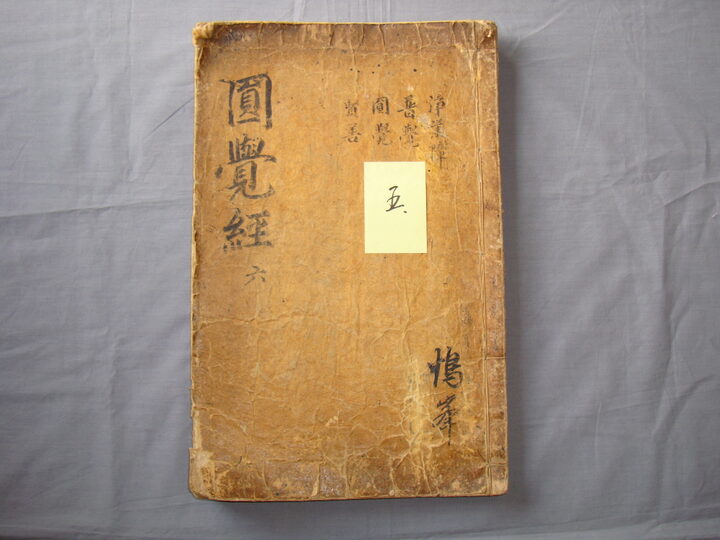 淨業障
普覺
圓覺
賢善
五、
峯
圓覺經 六